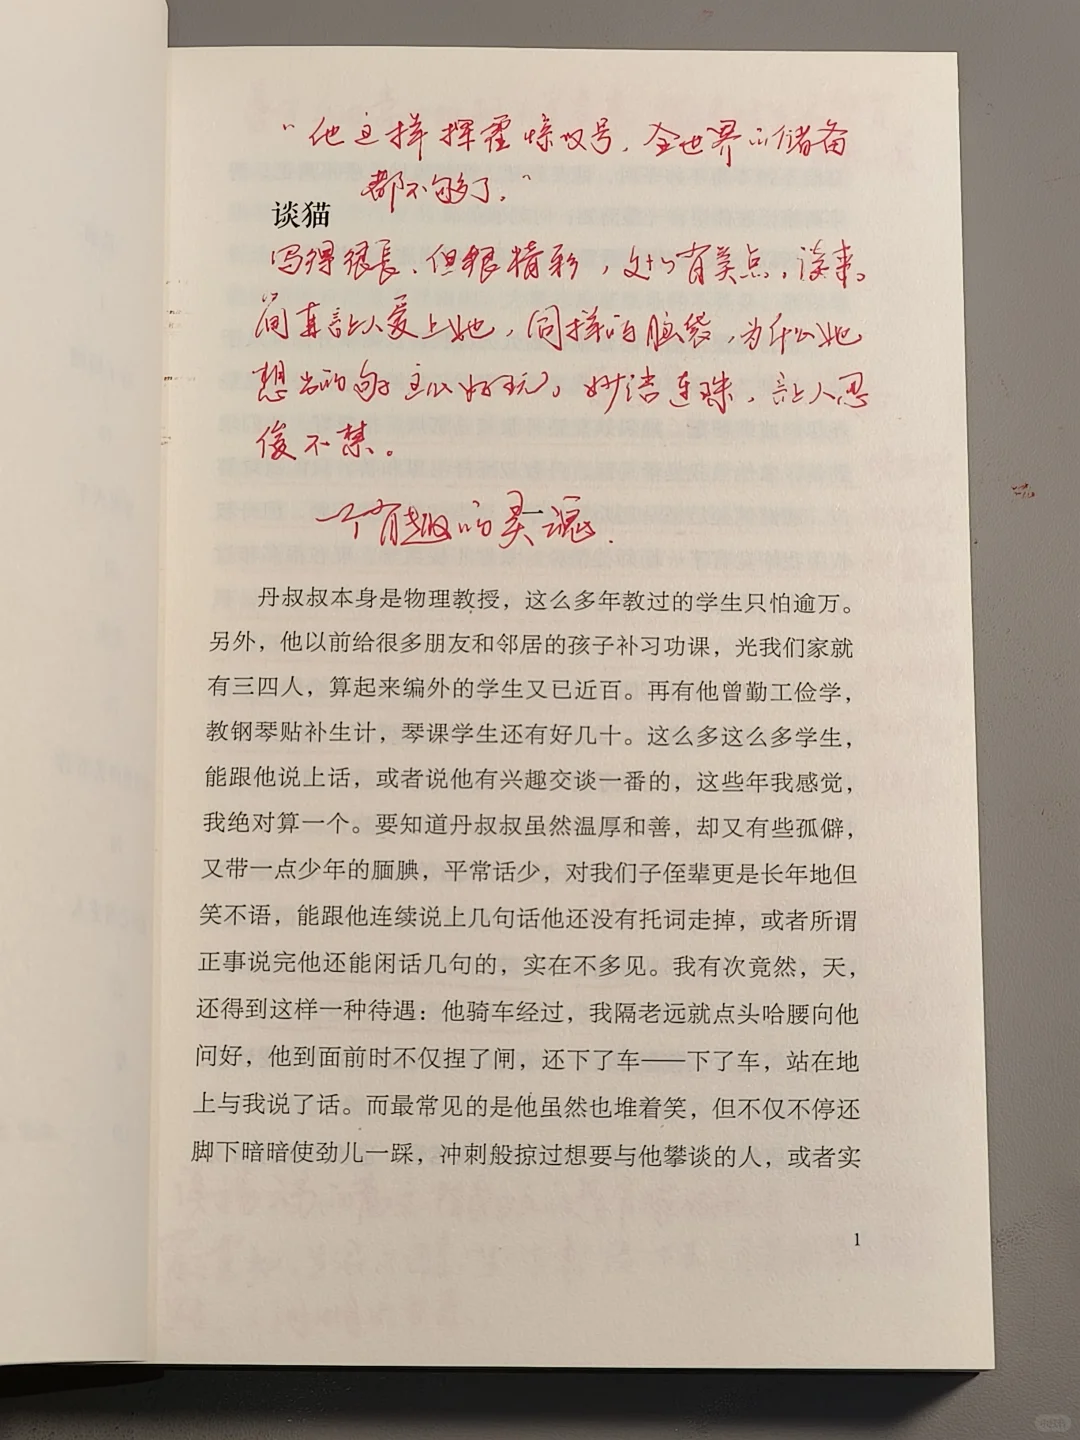 “他这样挥霍惊叹号，全世界的储备
都不够了。”
谈猫
写得很長、但很精彩，处处有笑点，读来。
间真让人爱上她，同样的脑袋，为什么她
想出的句子这么好玩，妙语连珠，让人忍
俊不禁。
一个有趣的灵魂.
丹叔叔本身是物理教授，这么多年教过的学生只怕逾万。
另外，他以前给很多朋友和邻居的孩子补习功课，光我们家就
有三四人，算起来编外的学生又已近百。再有他曾勤工俭学，
教钢琴贴补生计，琴课学生还有好几十。这么多这么多学生，
能跟他说上话，或者说他有兴趣交谈一番的，这些年我感觉，
我绝对算一个。要知道丹叔叔虽然温厚和善，却又有些孤僻，
又带一点少年的腼腆，平常话少，对我们子侄辈更是长年地但
笑不语，能跟他连续说上几句话他还没有托词走掉，或者所谓
正事说完他还能闲话几句的，实在不多见。我有次竟然，天，
还得到这样一种待遇：他骑车经过，我隔老远就点头哈腰向他
问好，他到面前时不仅捏了闸，还下了车——下了车，站在地
上与我说了话。而最常见的是他虽然也堆着笑，但不仅不停还
脚下暗暗使劲儿一踩，冲刺般掠过想要与他攀谈的人，或者实
1